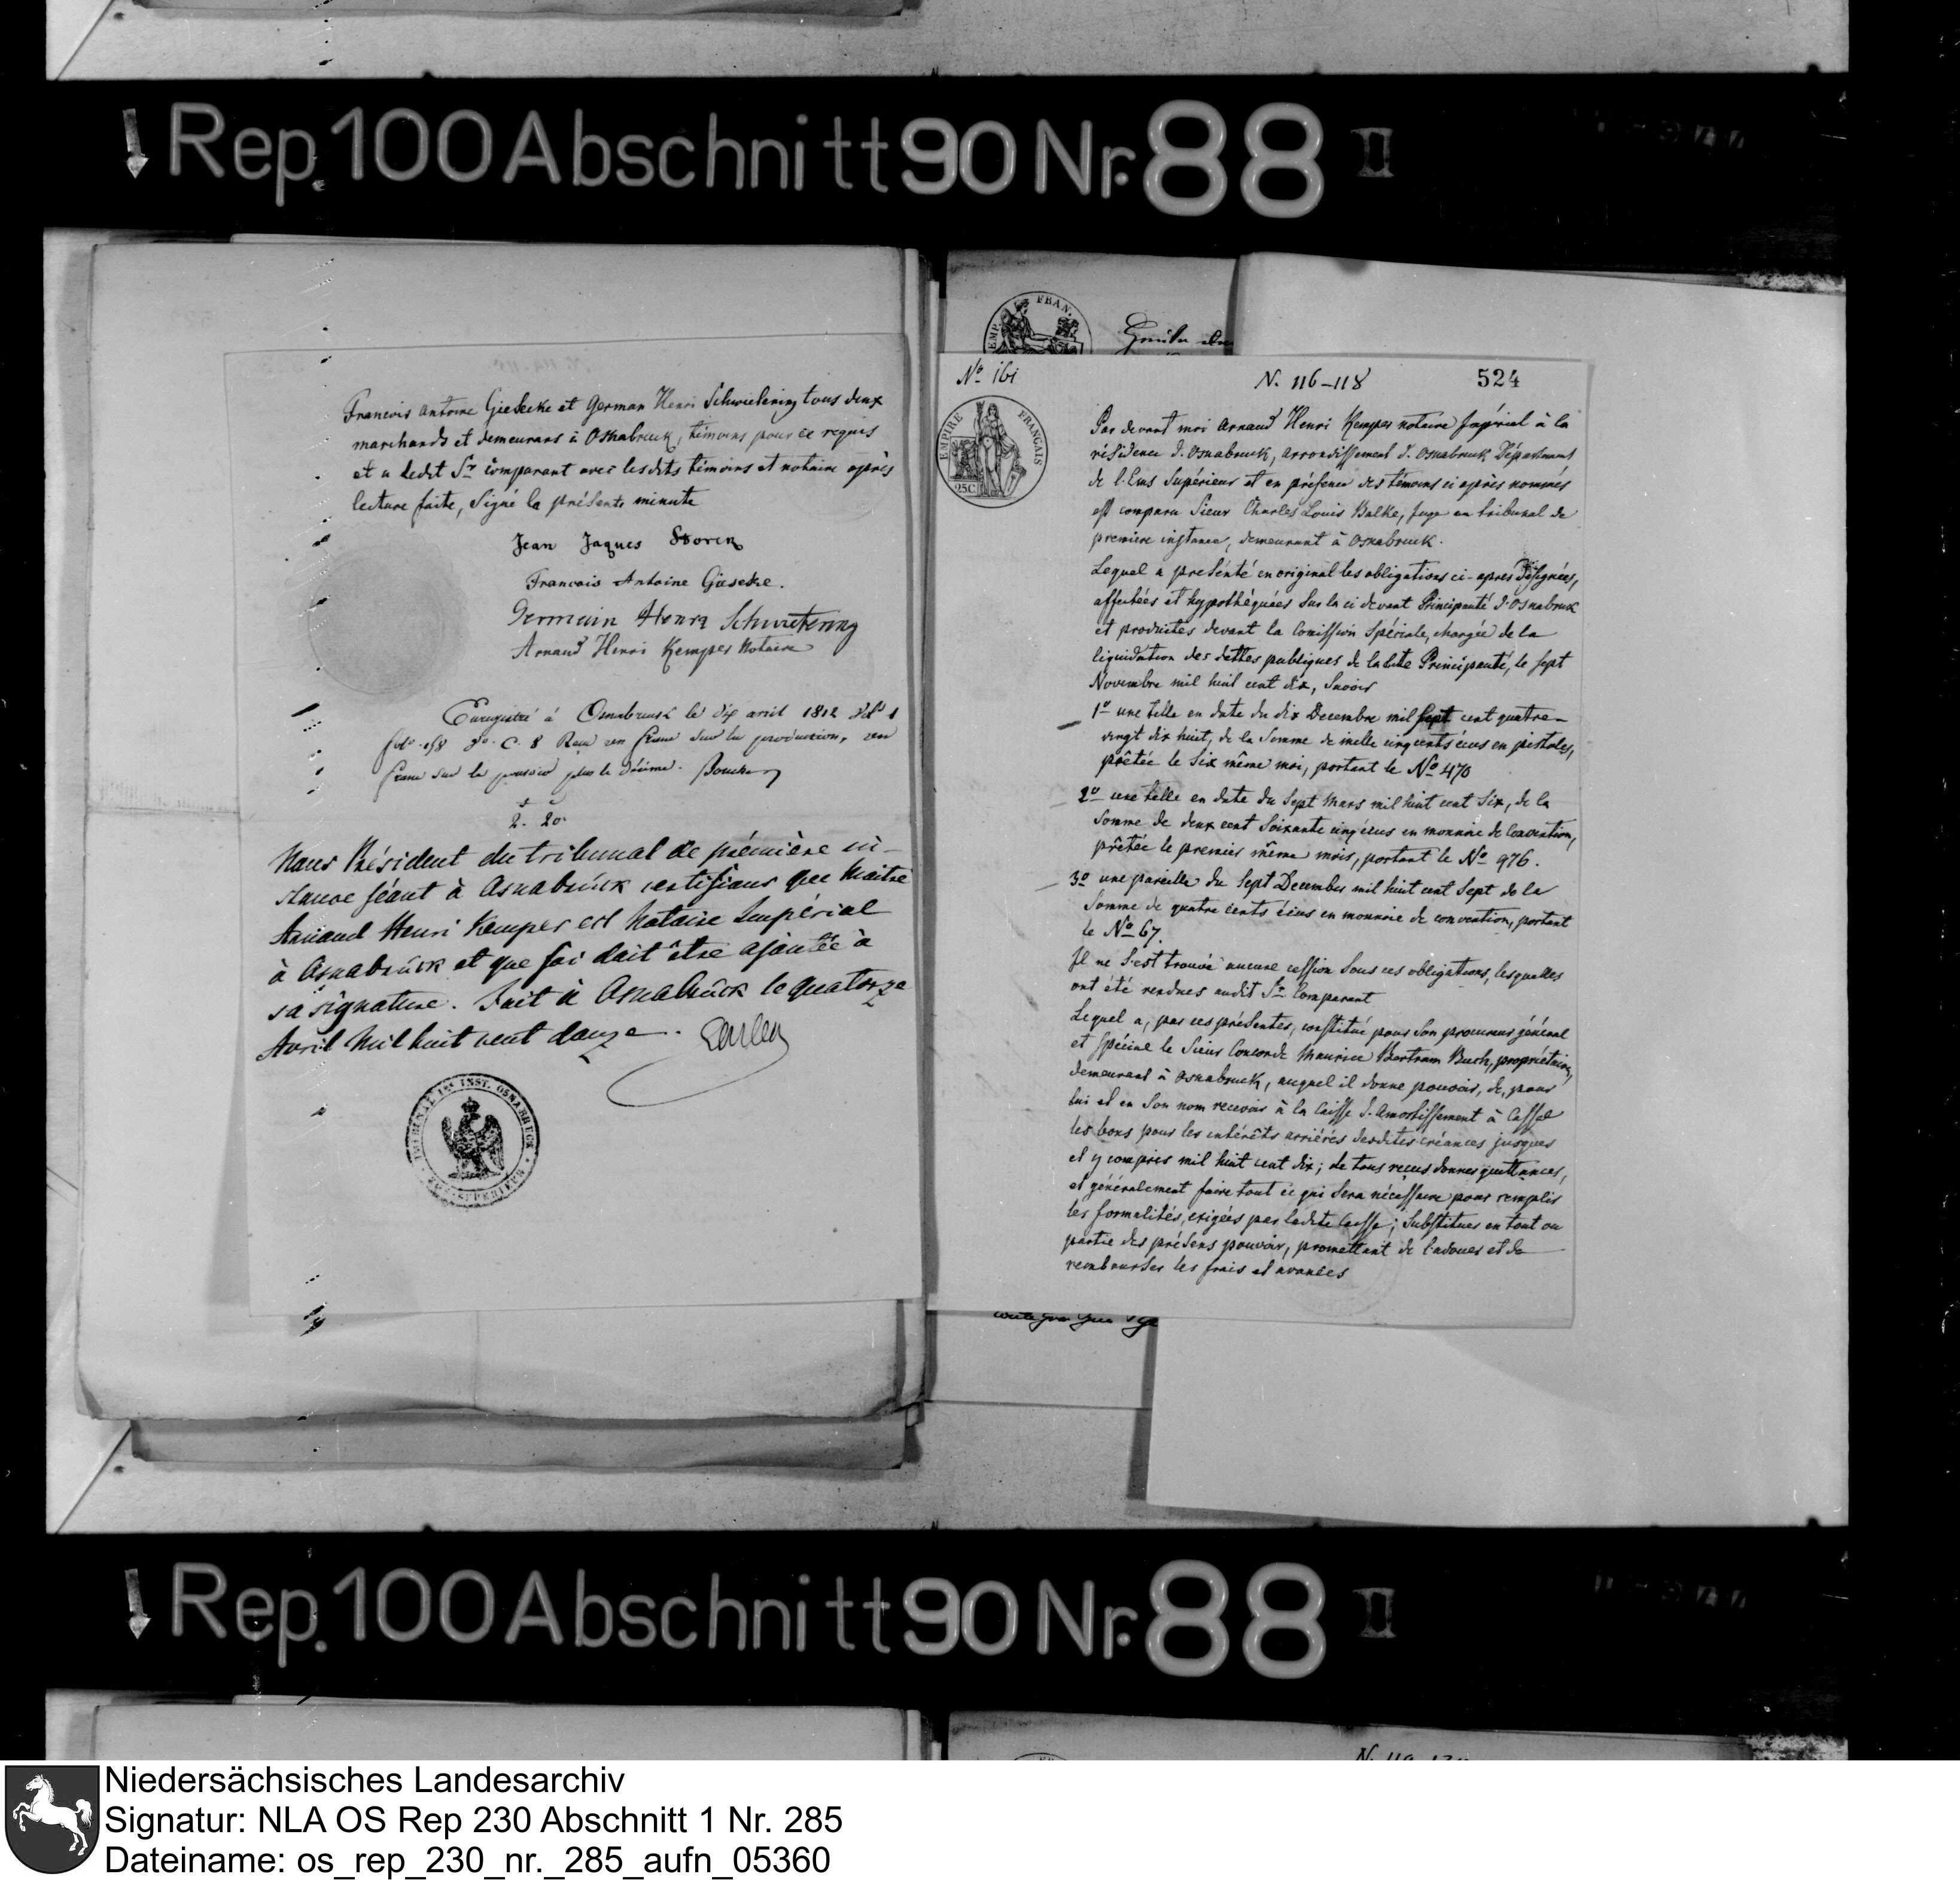 Rep. 100 Abschnitt 90 Nr. 88 II
Francois Antoine Giesecke et German Henri Schwietering tous deux
marchands et demeurans à Osnabruck, témoins pour ce requis
et a ledit Sr. Comparant avec lesdits témoins et notaire après
lecture faite, Signé la présente minute
Jean Jaques
Francois Antoine Gieseke.
Germain Henri Schwietering
Arnaud Henri Kemper Notaire
Enregistré à Osnabruck le dix avril 1812
C. 8 Reçu un franc sur la production, un
franc sur le plus le décime.
2. 20.
Nous Président du tribunal de prémière in-
stance séant à Osnabrück certifions que Maitre
Arnaud Henri Kemper est Notaire Impérial
à Osnabrück et que foi doit être ajoutée à
sa signature. Fait à Osnabrück le quatorze
Avril Mil huit cent douze.
TRIBUNAL 1re INST. OSNABRUCK
EMS-SUPERIEUR
EMP. FRAN.
No. 161
N. 116-118
524
EMPIRE FRANÇAIS
25 C.
Par devant moi Arnaud Henri Kemper notaire Impérial à la
résidence d'Osnabruck, arrondissement d'Osnabruck Département
de l'Ems Supérieur et en présence des témoins ci après nommés
est comparu Sieur Charles Louis Balke, juge au tribunal de
premiere instance, demeurant à Osnabruck.
Lequel a presénté en original les obligations ci-apres désignées,
affectées et hypothéquées sur la ci devant Principauté d'Osnabruck
et produites devant la Comission Spéciale, chargée de la
liquidation des dettes publiques de ladite Principauté, le sept
Novembre mil huit cent dix, Savoir
1o une telle en date du dix Decembre mil sept cent quatre-
vingt dix huit, de la Somme de mille cinq cents écus en pistoles,
prêtée le Six même moi, portant le No 470
2o une telle en date du Sept Mars mil huit cent Six, de la
Somme de deux cent Soixante cinq écus en monnoie de Convention,
prêtée le premier même mois, portant le No 976.
3o une pareille du Sept Decembre mil huit cent Sept de la
Somme de quatre cents écus en monnoie de convention, portant
le No 67.
Il ne s'est trouvé aucune cession Sous ces obligations, lesquelles
ont été rendues audit Sr. Comparant
Lequel a, par ces présentes, constitué pour Son procureur général
et spécial le Sieur Concorde Maurice Bertram Buch, propriétaire,
demeurant à Osnabruck, auquel il donne pouvoir, de, pour
lui et en Son nom recevoir à la Caisse d'Amortissement à Cassel
les bons pour les intérêts arriérés desdites créances jusques
et y compris mil huit cent dix; de tous reçus donner quittances,
et généralement faire tout ce qui Sera nécessaire pour remplir
les formalités, exigées par ladite Caisse; Substituer en tout ou
partie des présens pouvoir, promettant de l'avouer et de
rembourser les frais et avances
Rep. 100 Abschnitt 90 Nr. 88 II
Niedersächsisches Landesarchiv
Signatur: NLA OS Rep 230 Abschnitt 1 Nr. 285
Dateiname: os_rep_230_nr._285_aufn_05360